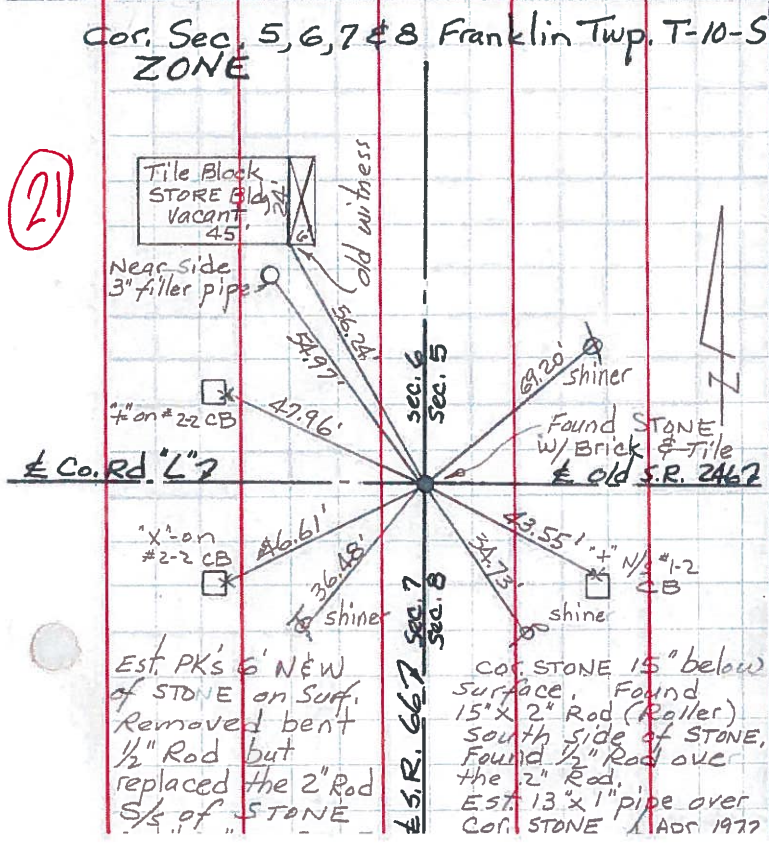 Cor. Sec. 5, 6, 7 & 8 Franklin Twp. T-10-S
ZONE
21
Tile Block
STORE Bldg
Vacant
45'
24'
6'
old witness
Near Side
3" filler pipe
56.24'
54.97'
"+" on #2-2 CB
47.96'
sec. 6
sec. 5
69.20'
shiner
N
Found STONE
w/ Brick & Tile
℄ Co. Rd. "L"
℄ Old S.R. 246
"X"-on
#2-2 CB
46.61'
36.48'
shiner
Sec. 7
Sec. 8
34.73'
43.55'
"+" N/s #1-2
CB
shine
Est. PK's 6' N&W
of STONE on Surf.
Removed bent
1/2" Rod but
replaced the 2" Rod
S/s of STONE
℄ S.R. 66
Cor. STONE 15" below
Surface. Found
15" X 2" Rod (Roller)
South side of STONE.
Found 1/2" Rod over
the 2" Rod.
Est. 13" x 1" pipe over
Cor. STONE Apr 1977